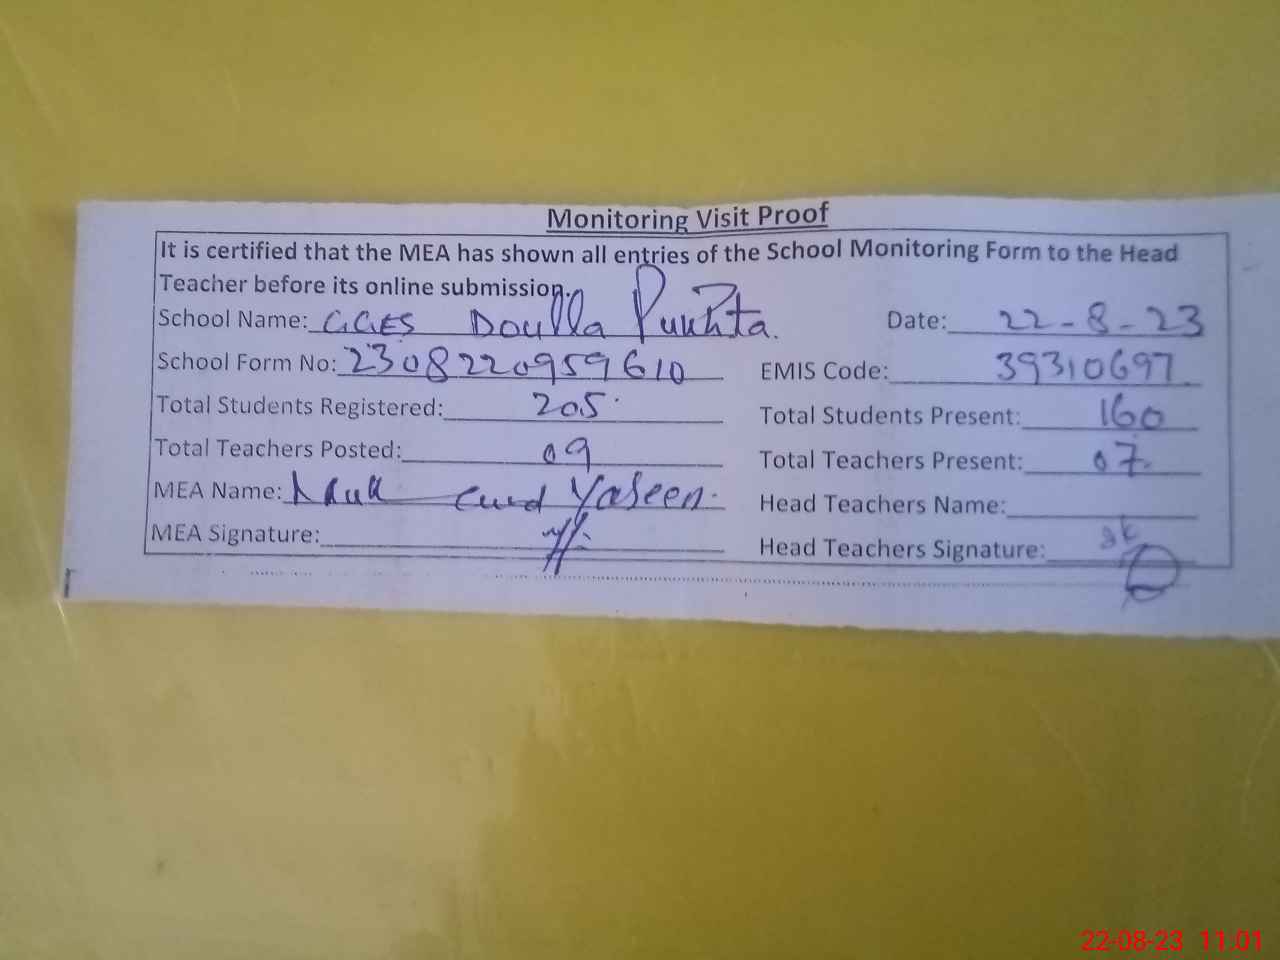 Monitoring Visit Proof
It is certified that the MEA has shown all entries of the School Monitoring Form to the Head
Teacher before its online submission.
School Name: GGES Doulla Pukhta. Date: 22-8-23
School Form No: 2308220959610 EMIS Code: 39310697
Total Students Registered: 205 Total Students Present: 160
Total Teachers Posted: 09 Total Teachers Present: 07
MEA Name: Yaseen. Head Teachers Name:
MEA Signature: Head Teachers Signature:
22-08-23 11:01